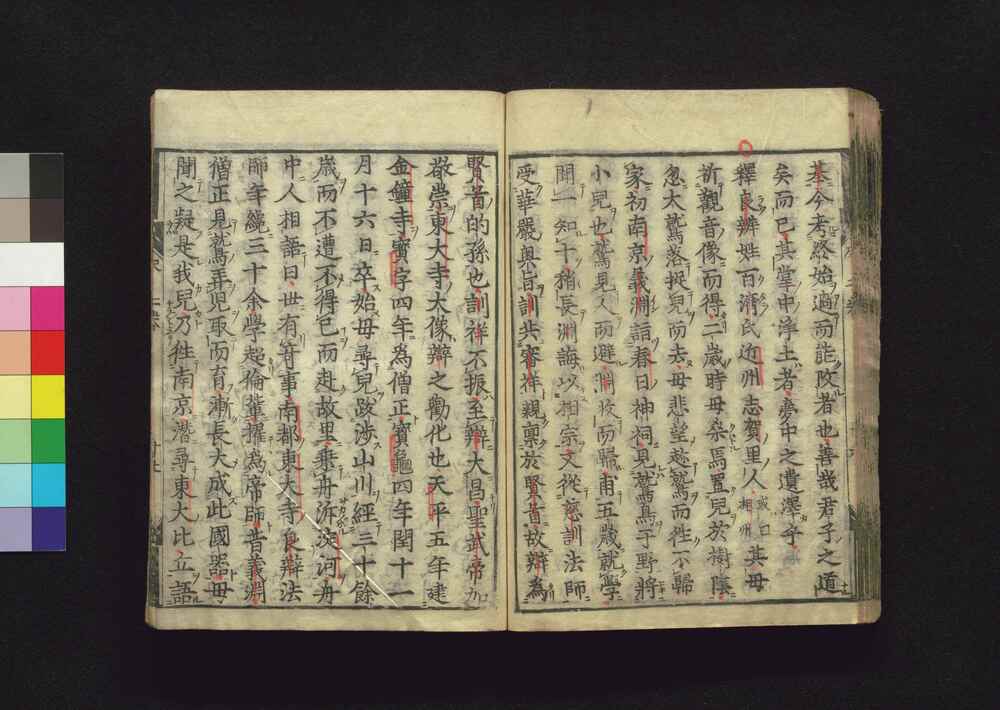 基今考終始適而能改者也善哉君子之道
矣而已其掌中浄土者夢中之遺澤乎
釋良辨姓百濟氏近州志賀里人或曰相州其母
祈觀音像而得二歲時母桒焉置兒於樹陰
忽大鷲落捉兒而去母悲望趂鷲而徃不歸
家初南京義淵詣春日神祠見鷲鳥于野將
小兒也鷲見人而避淵收而歸甫五歲就學
聞一知十稍長淵誨以相宗又從慈訓法師
受華嚴奧旨訓共審祥親禀於賢首故辨為
賢首的孫也訓祥不振至辨大昌聖武帝加
敬崇東大寺大像辨之勸化也天平五年建
金鐘寺寳字四年為僧正寳龜四年閏十一
月十六日卒始母尋兒跋涉山川經三十餘
歲而不遭不得已而赴故里乗舟泝淀河舟
中人相語曰世有竒事南都東大寺良辨法
師年纔三十余學超倫輩擢為帝師昔義淵
僧正見鷲弄兒取而育漸長大成此國器母
聞之疑是我兒乃徃南京潜尋東大比丘語